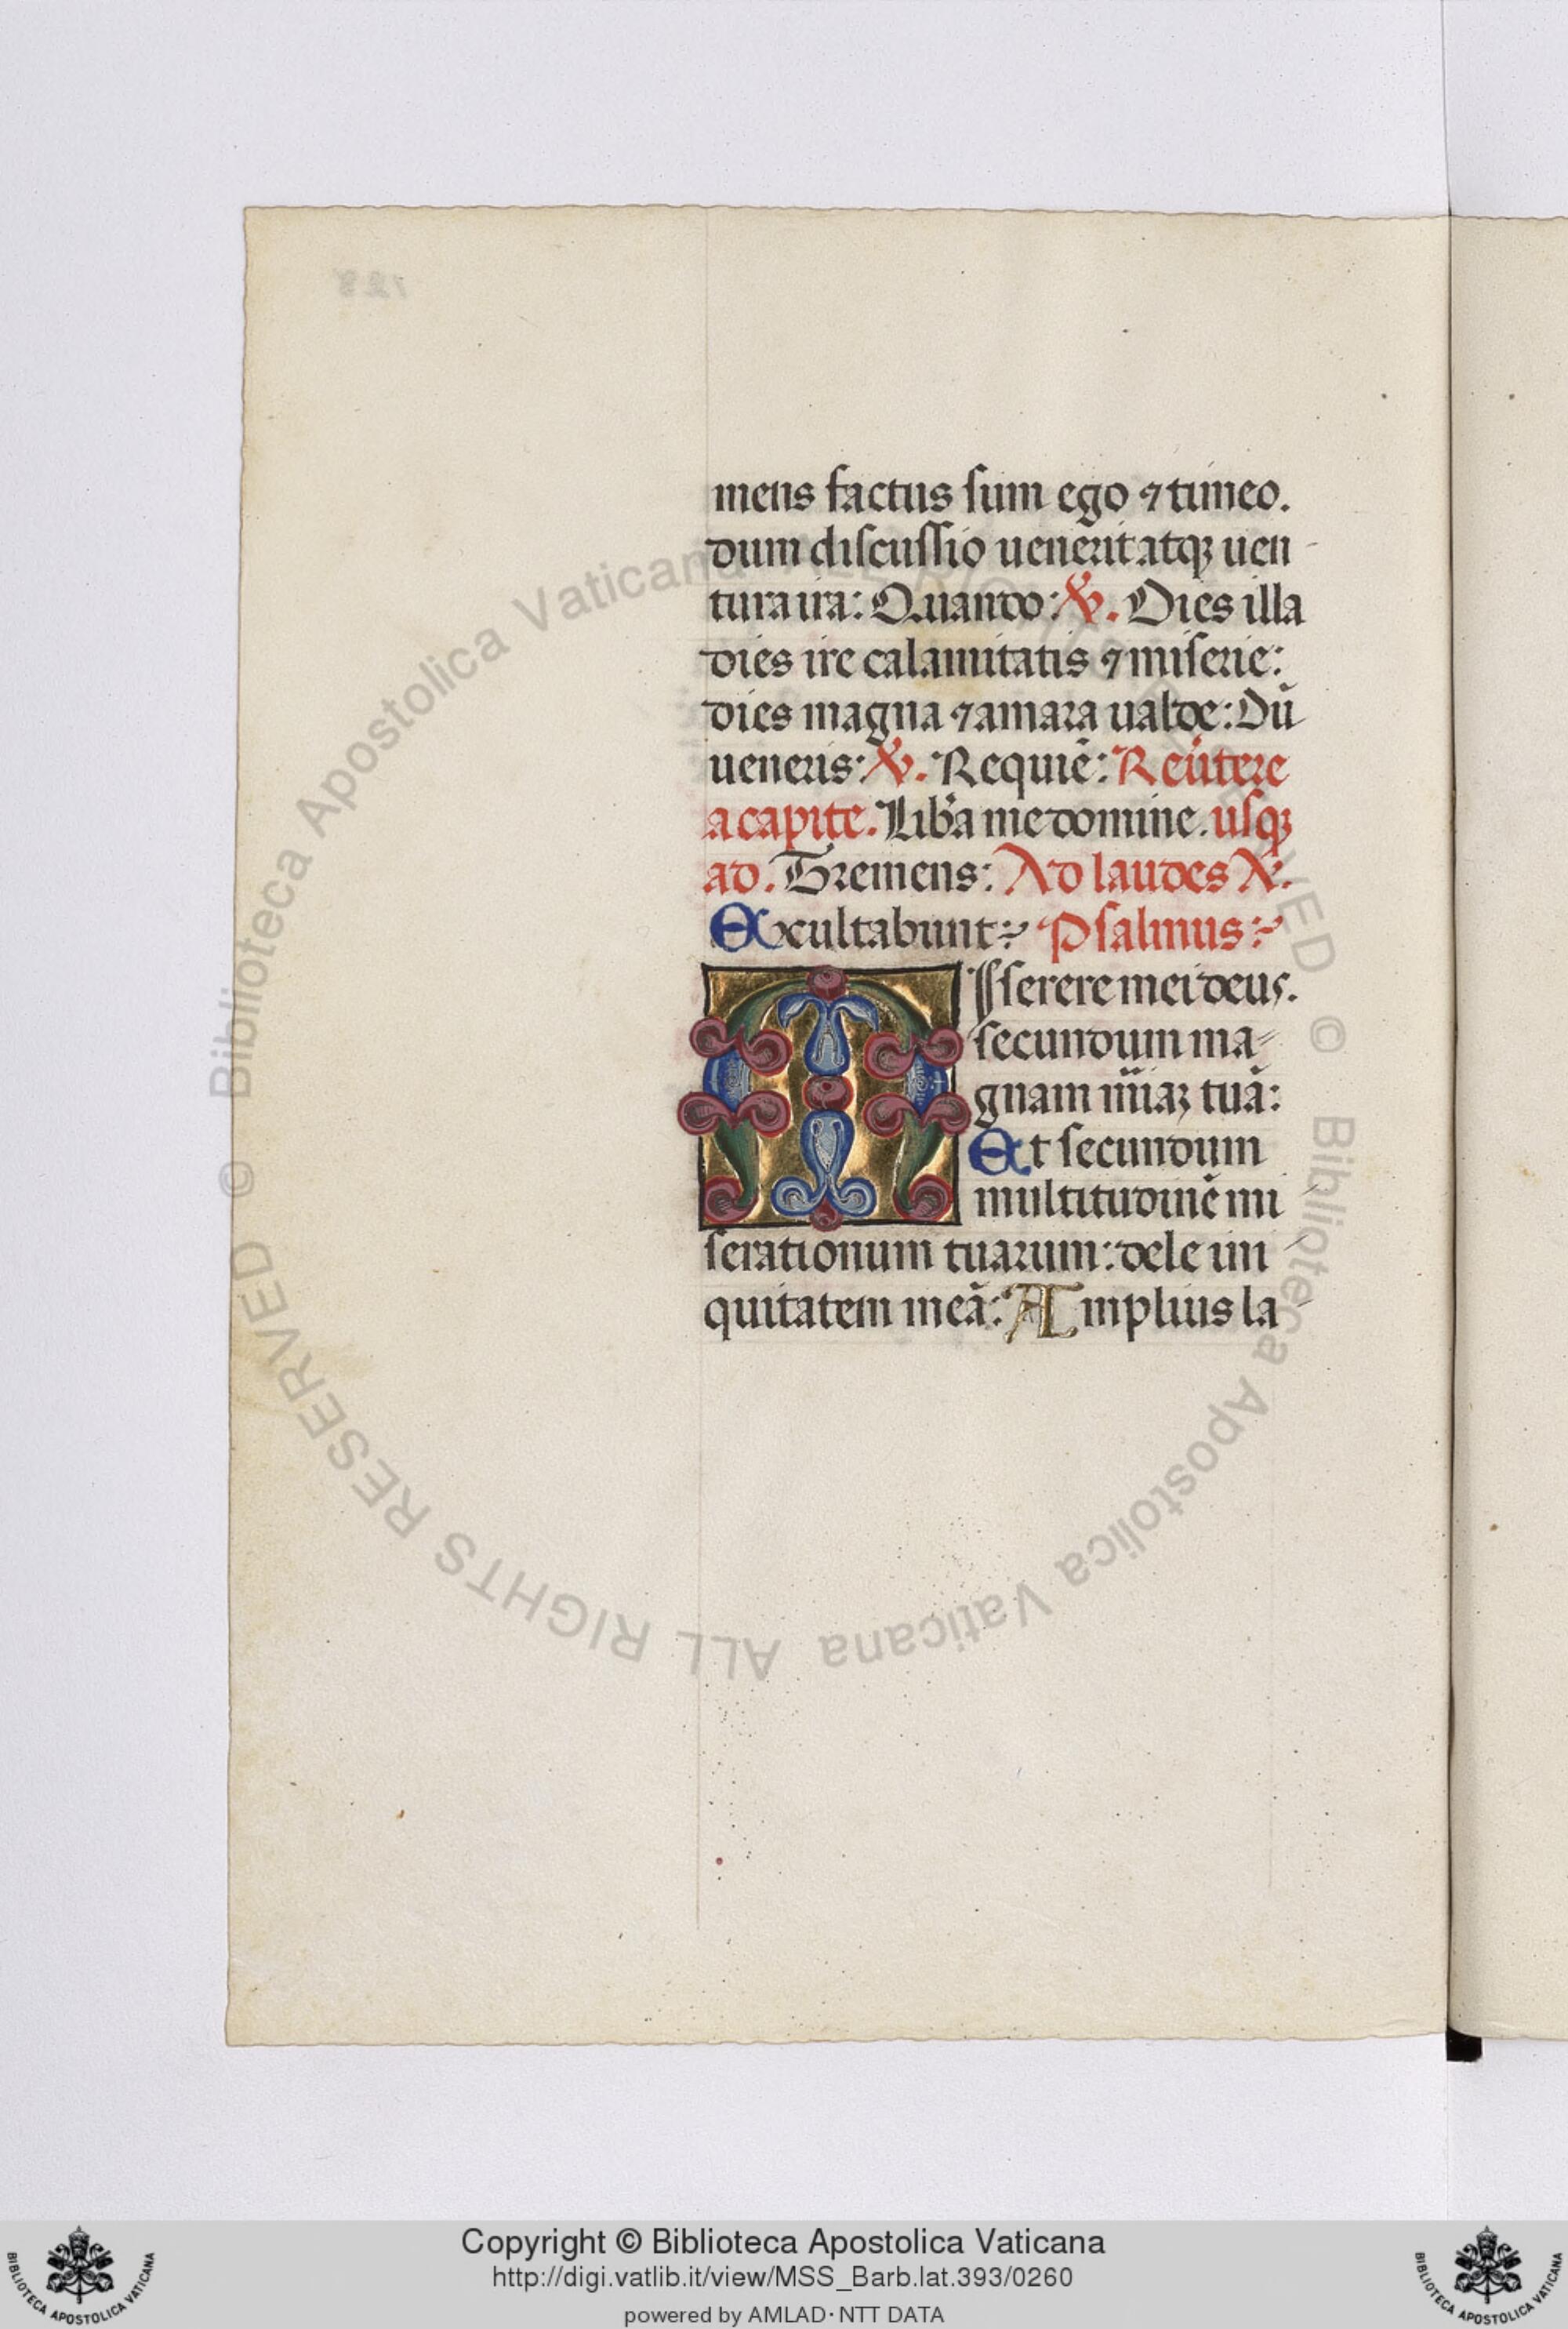 mens factus sum ego ⁊ timeo.
dum discussio uenerit atqꝫ uen-
tura ira: Quando: ℣. Dies illa
dies ire calamitatis ⁊ miserie:
dies magna ⁊ amara ualde: Dū
ueneris: ℣. Requiē: Reūtere
a capite. Liba me domine. usqꝫ
ad. Tremens: Ad laudes A.
Excultabunt: Psalmus:
MIserere mei deus.
secundum ma-
gnam miaꝫ tuā:
Et secundum
multitudinē mi-
serationum tuarum: dele ini-
quitatem meā: Amplius la-
© Biblioteca Apostolica Vaticana ALL RIGHTS RESERVED © Biblioteca Apostolica Vaticana ALL RIGHTS RESERVED
Copyright © Biblioteca Apostolica Vaticana
http://digi.vatlib.it/view/MSS_Barb.lat.393/0260
powered by AMLAD·NTT DATA
BIBLIOTECA APOSTOLICA VATICANA
BIBLIOTECA APOSTOLICA VATICANA